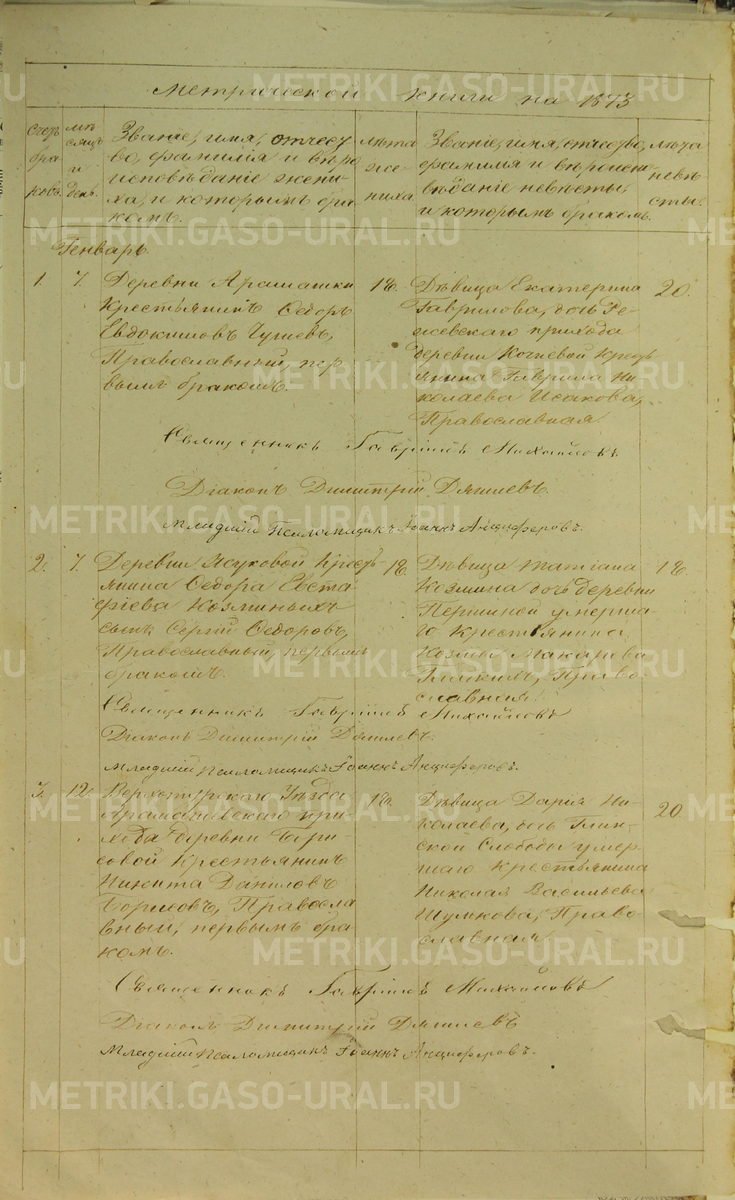 Метрической книги на 1873
Счетъ браковъ.
мѣсяцъ и день.
Званіе, имя, отчество, фамилія и вѣроисповѣданіе жениха, и которымъ бракомъ.
лѣта жениха
Званіе, имя, отчество, фамилія и вѣроисповѣданіе невѣсты, и которымъ бракомъ.
лѣта невѣсты.
Генварь.
1. 7. Деревни Арамашки
Крестьянинъ Ѳедоръ
Евдокимовъ
Православный, пер
вымъ бракомъ.
18.
Дѣвица Екатерина
Гаврилова, дочь Ре-
жевскаго прихода
деревни Кочневой Кресть
янина Гаврила Ни
колаева Исакова,
Православная
20.
Священникъ Гавріилъ Михайловъ
Діаконъ Димитрій
Младшій Псаломщикъ Іоаннъ Анциферовъ.
2. 7. Деревни Ясуковой Кресть-
янина Ѳедора Евста
фіева Козминыхъ
сынъ Сергій Ѳедоровъ,
Православный, первымъ
бракомъ.
18.
Дѣвица Татіана
Козмина дочь деревни
Першиной умерша-
го Крестьянина
Козмы Макарова
Православная.
18.
Священникъ Гавріилъ Михайловъ
Діаконъ Димитрій
Младшій Псаломщикъ Іоаннъ Анциферовъ.
3. 12. Верхотурскаго Уѣзда
Арамашевскаго при-
хода деревни Бори-
совой Крестьянинъ
Никита Даниловъ
Борисовъ, Правосла
вный, первымъ бра
комъ.
18.
Дѣвица Дарія Ни-
колаева, дочь Глин-
ской Слободы умер-
шаго Крестьянина
Николая Васильева
Шумкова, Право-
славная
20.
Священникъ Гавріилъ Михайловъ
Діаконъ Димитрій
Младшій Псаломщикъ Іоаннъ Анциферовъ.
METRIKI.GASO-URAL.RU